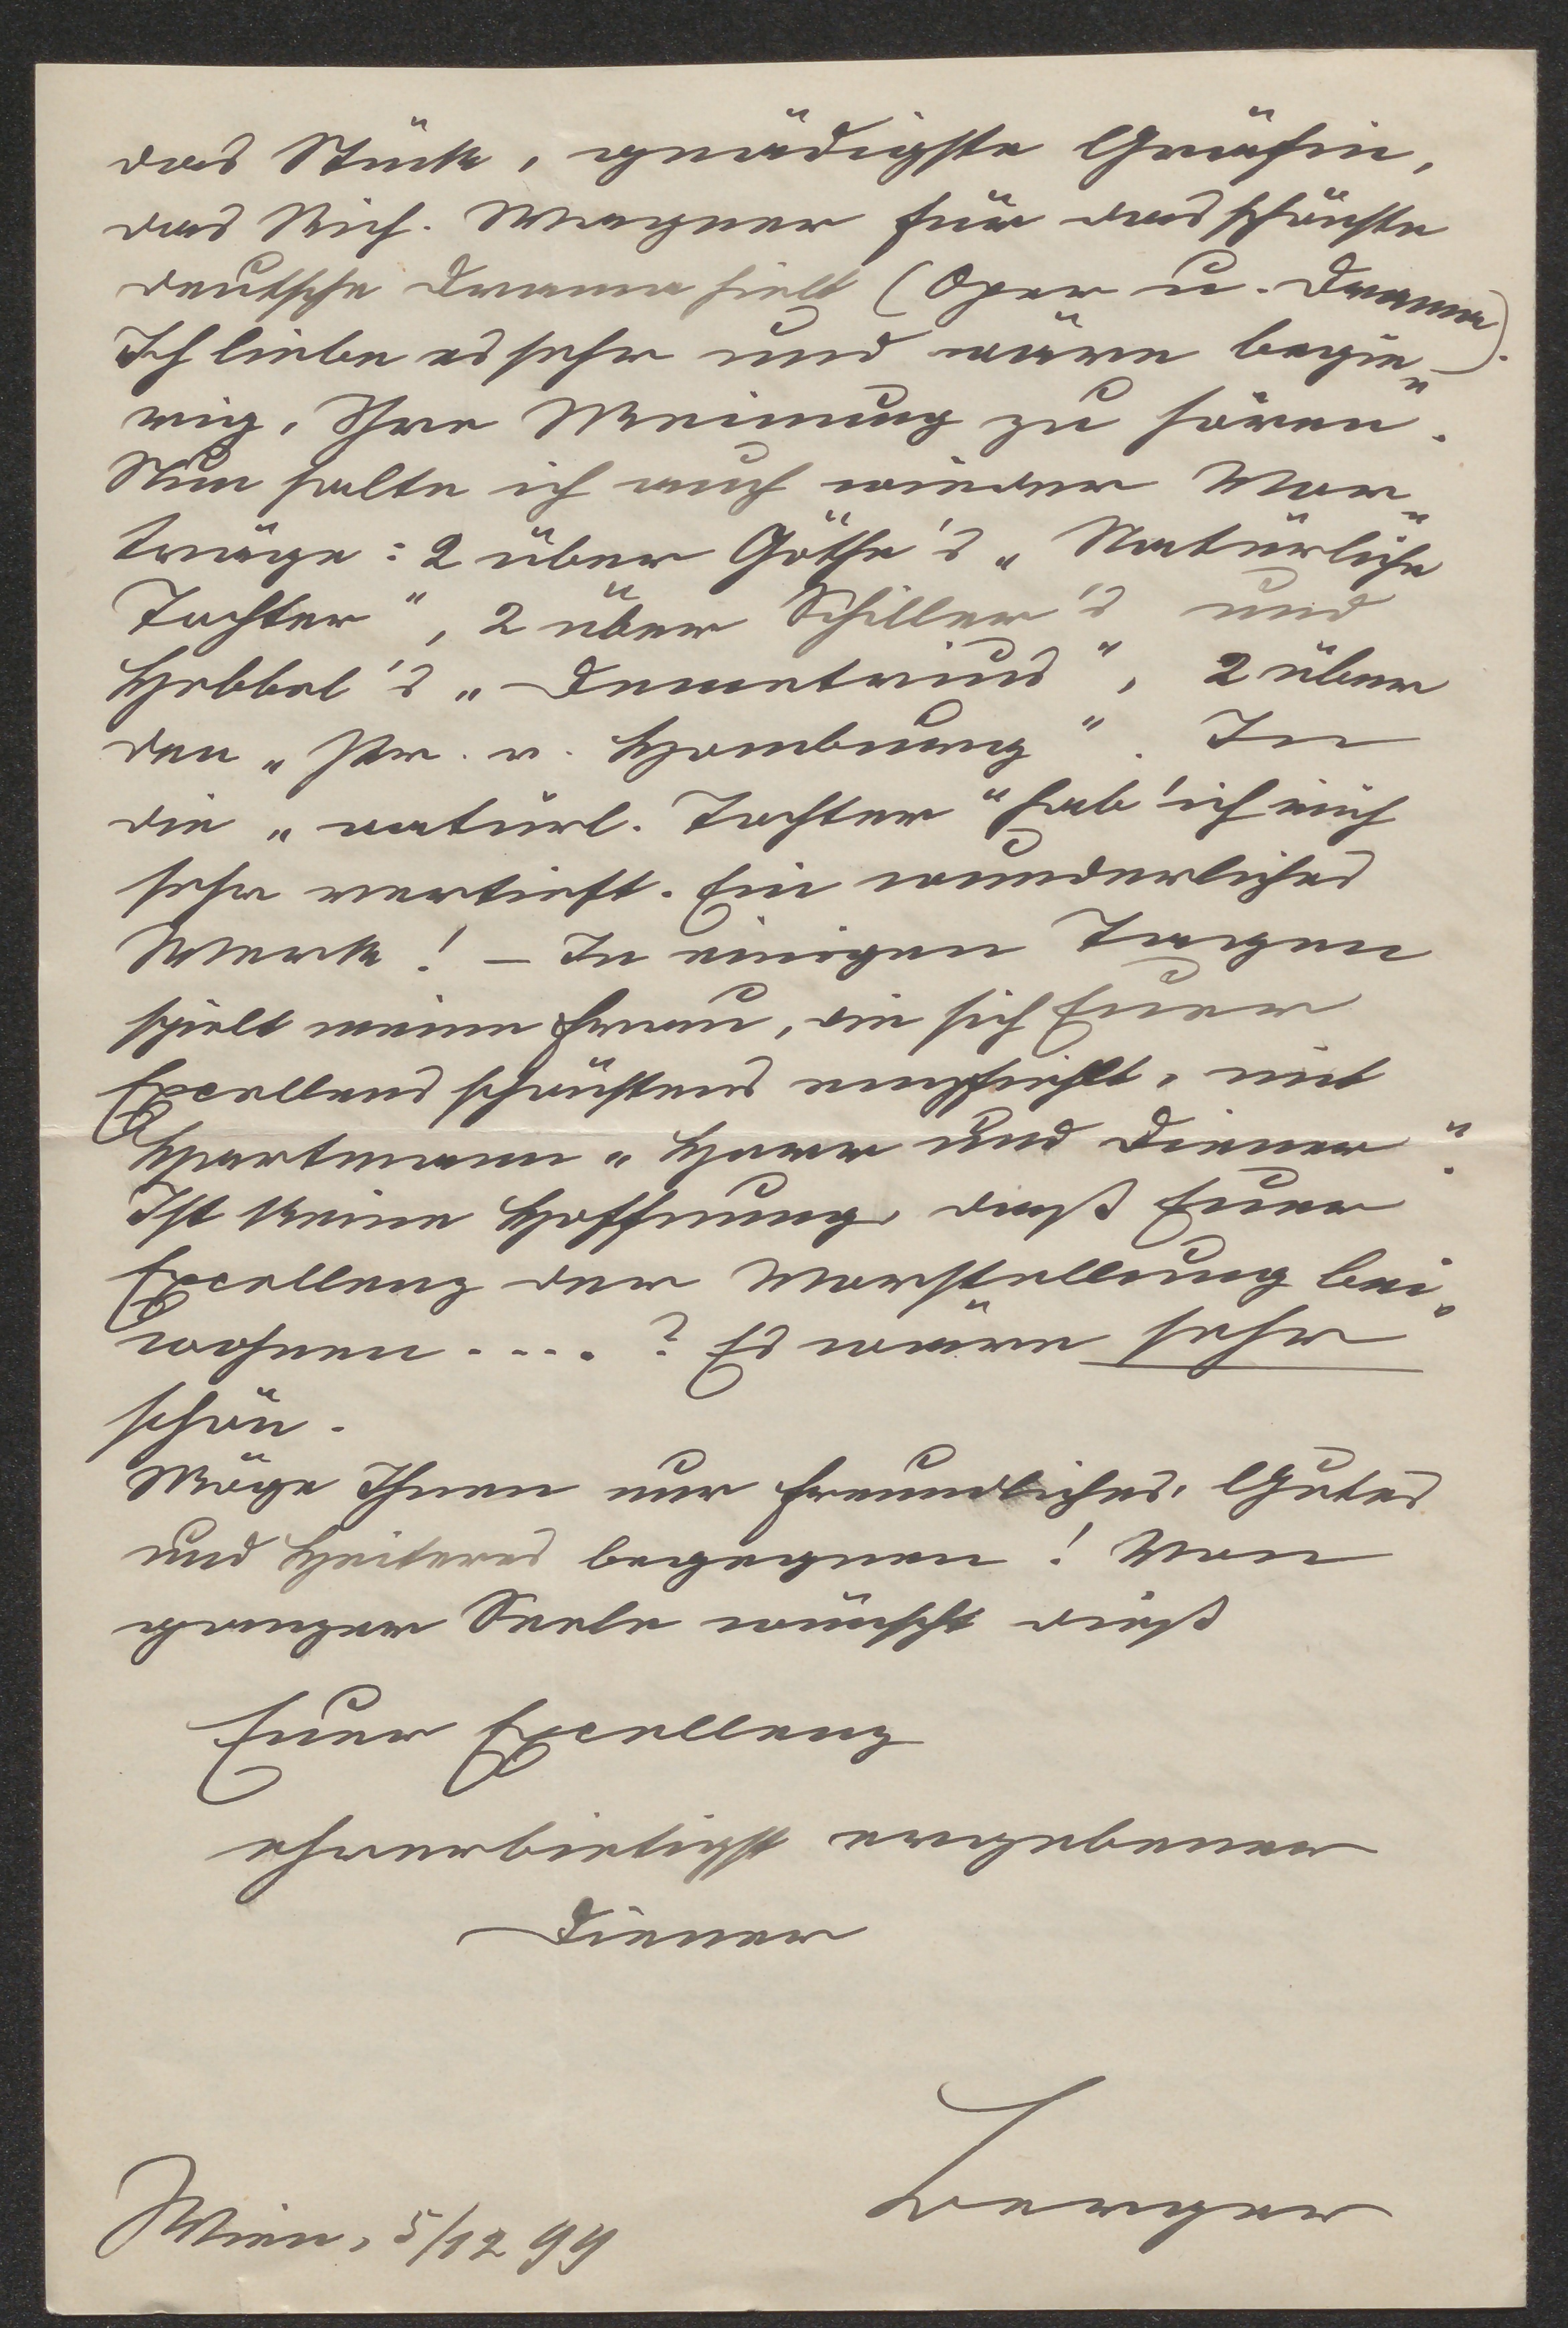 das Stück, gnädigste Gräfin,
das Rich. Wagner für das schönste
deutsche Drama hielt (Oper u. Drama).
Ich liebe es sehr und wäre begie-
rig, Ihre Meinung zu hören.
Nun halte ich auch wieder Vor-
träge: 2 über Göthe's „Natürliche
Tochter", 2 über Schiller's und
Hebbel's „Demetrius", 2 über
den „Pr. v. Homburg". In
die „natürl. Tochter" hab' ich mich
sehr vertieft. Ein wunderliches
Werk! – In einigen Tagen
spielt meine Frau, die sich Euer
Excellenz schönstens empfiehlt, mit
Hartmann „Herr und Diener".
Ist keine Hoffnung, daß Euer
Excellenz der Vorstellung bei-
wohnen . . . . ? Es wäre sehr
schön.
Möge Ihnen nur Freundliches, Gutes
und Heiteres begegnen! Von
ganzer Seele wünscht dieß
Euer Excellenz
ehrerbietigst ergebener
Diener
Berger
Wien, 5/12 99